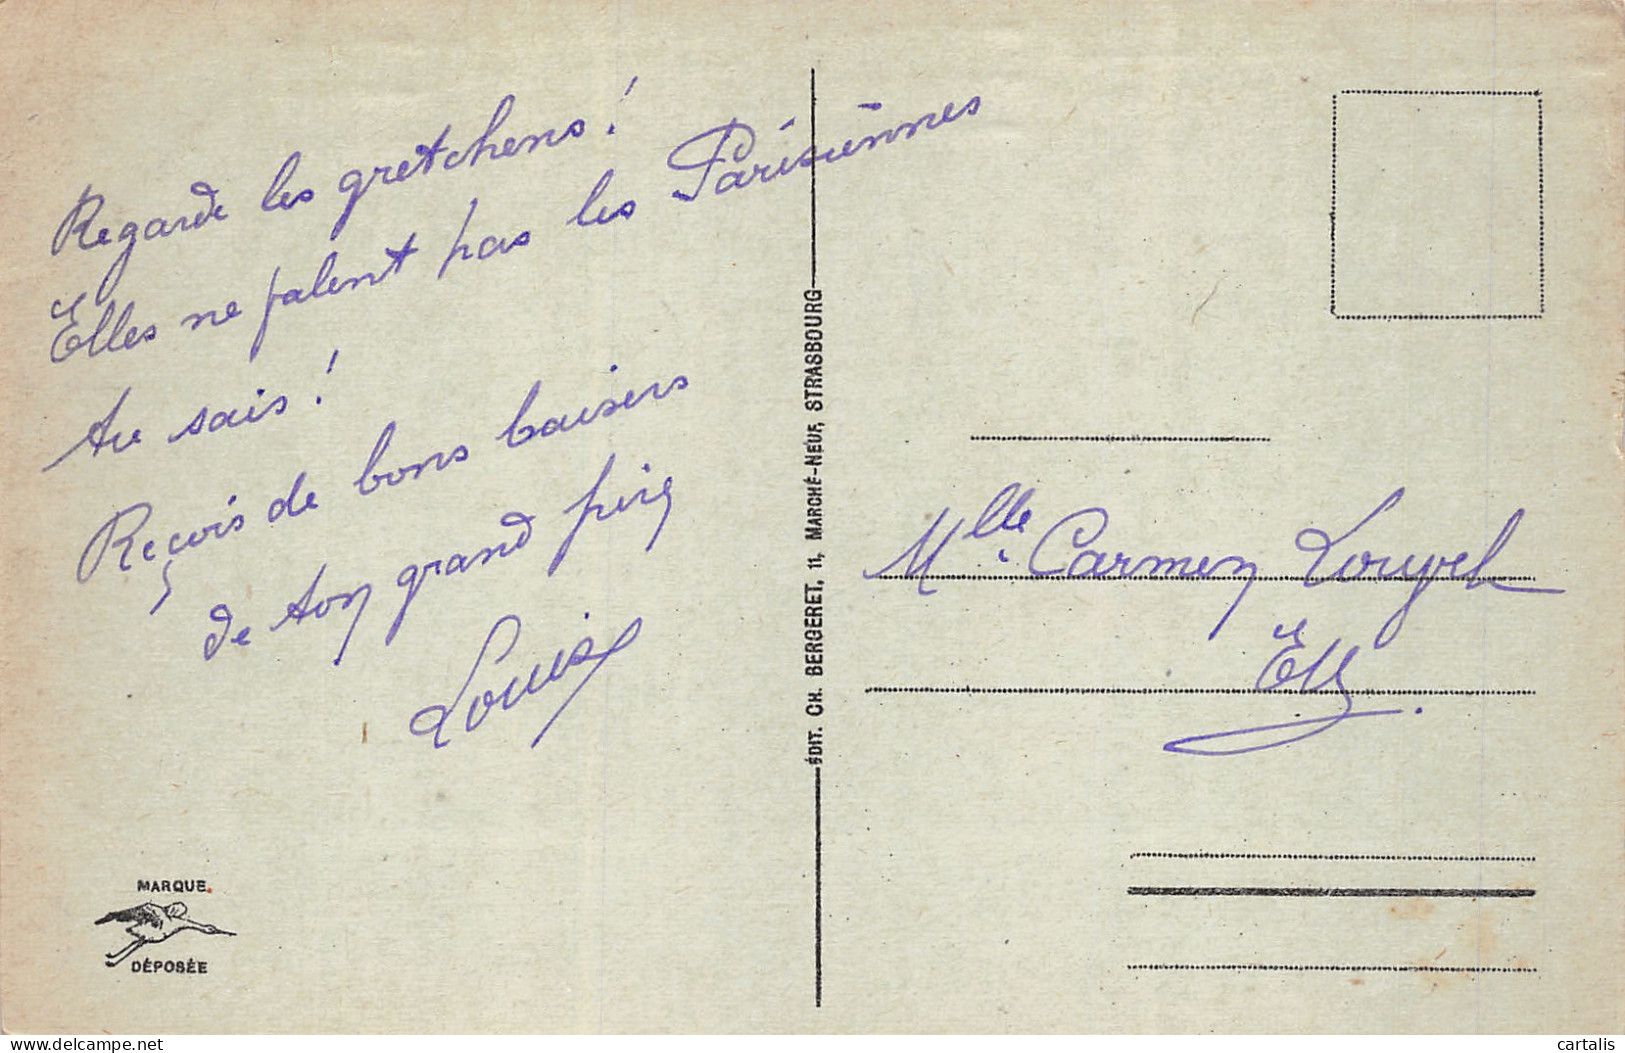 Regarde les gretchens !
Elles ne valent pas les Parisiennes
tu sais !
Reçois de bons baisers
de ton grand père
Louis
MARQUE
DÉPOSÉE
ÉDIT. CH. BERGERET, 11, MARCHÉ-NEUF, STRASBOURG
Mlle Carmen
delcampe.net
cartalis